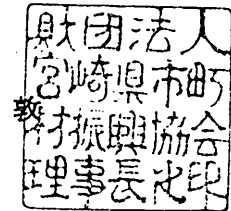 財団法人
宮崎県市町
村振興協会
理事長之印
敦